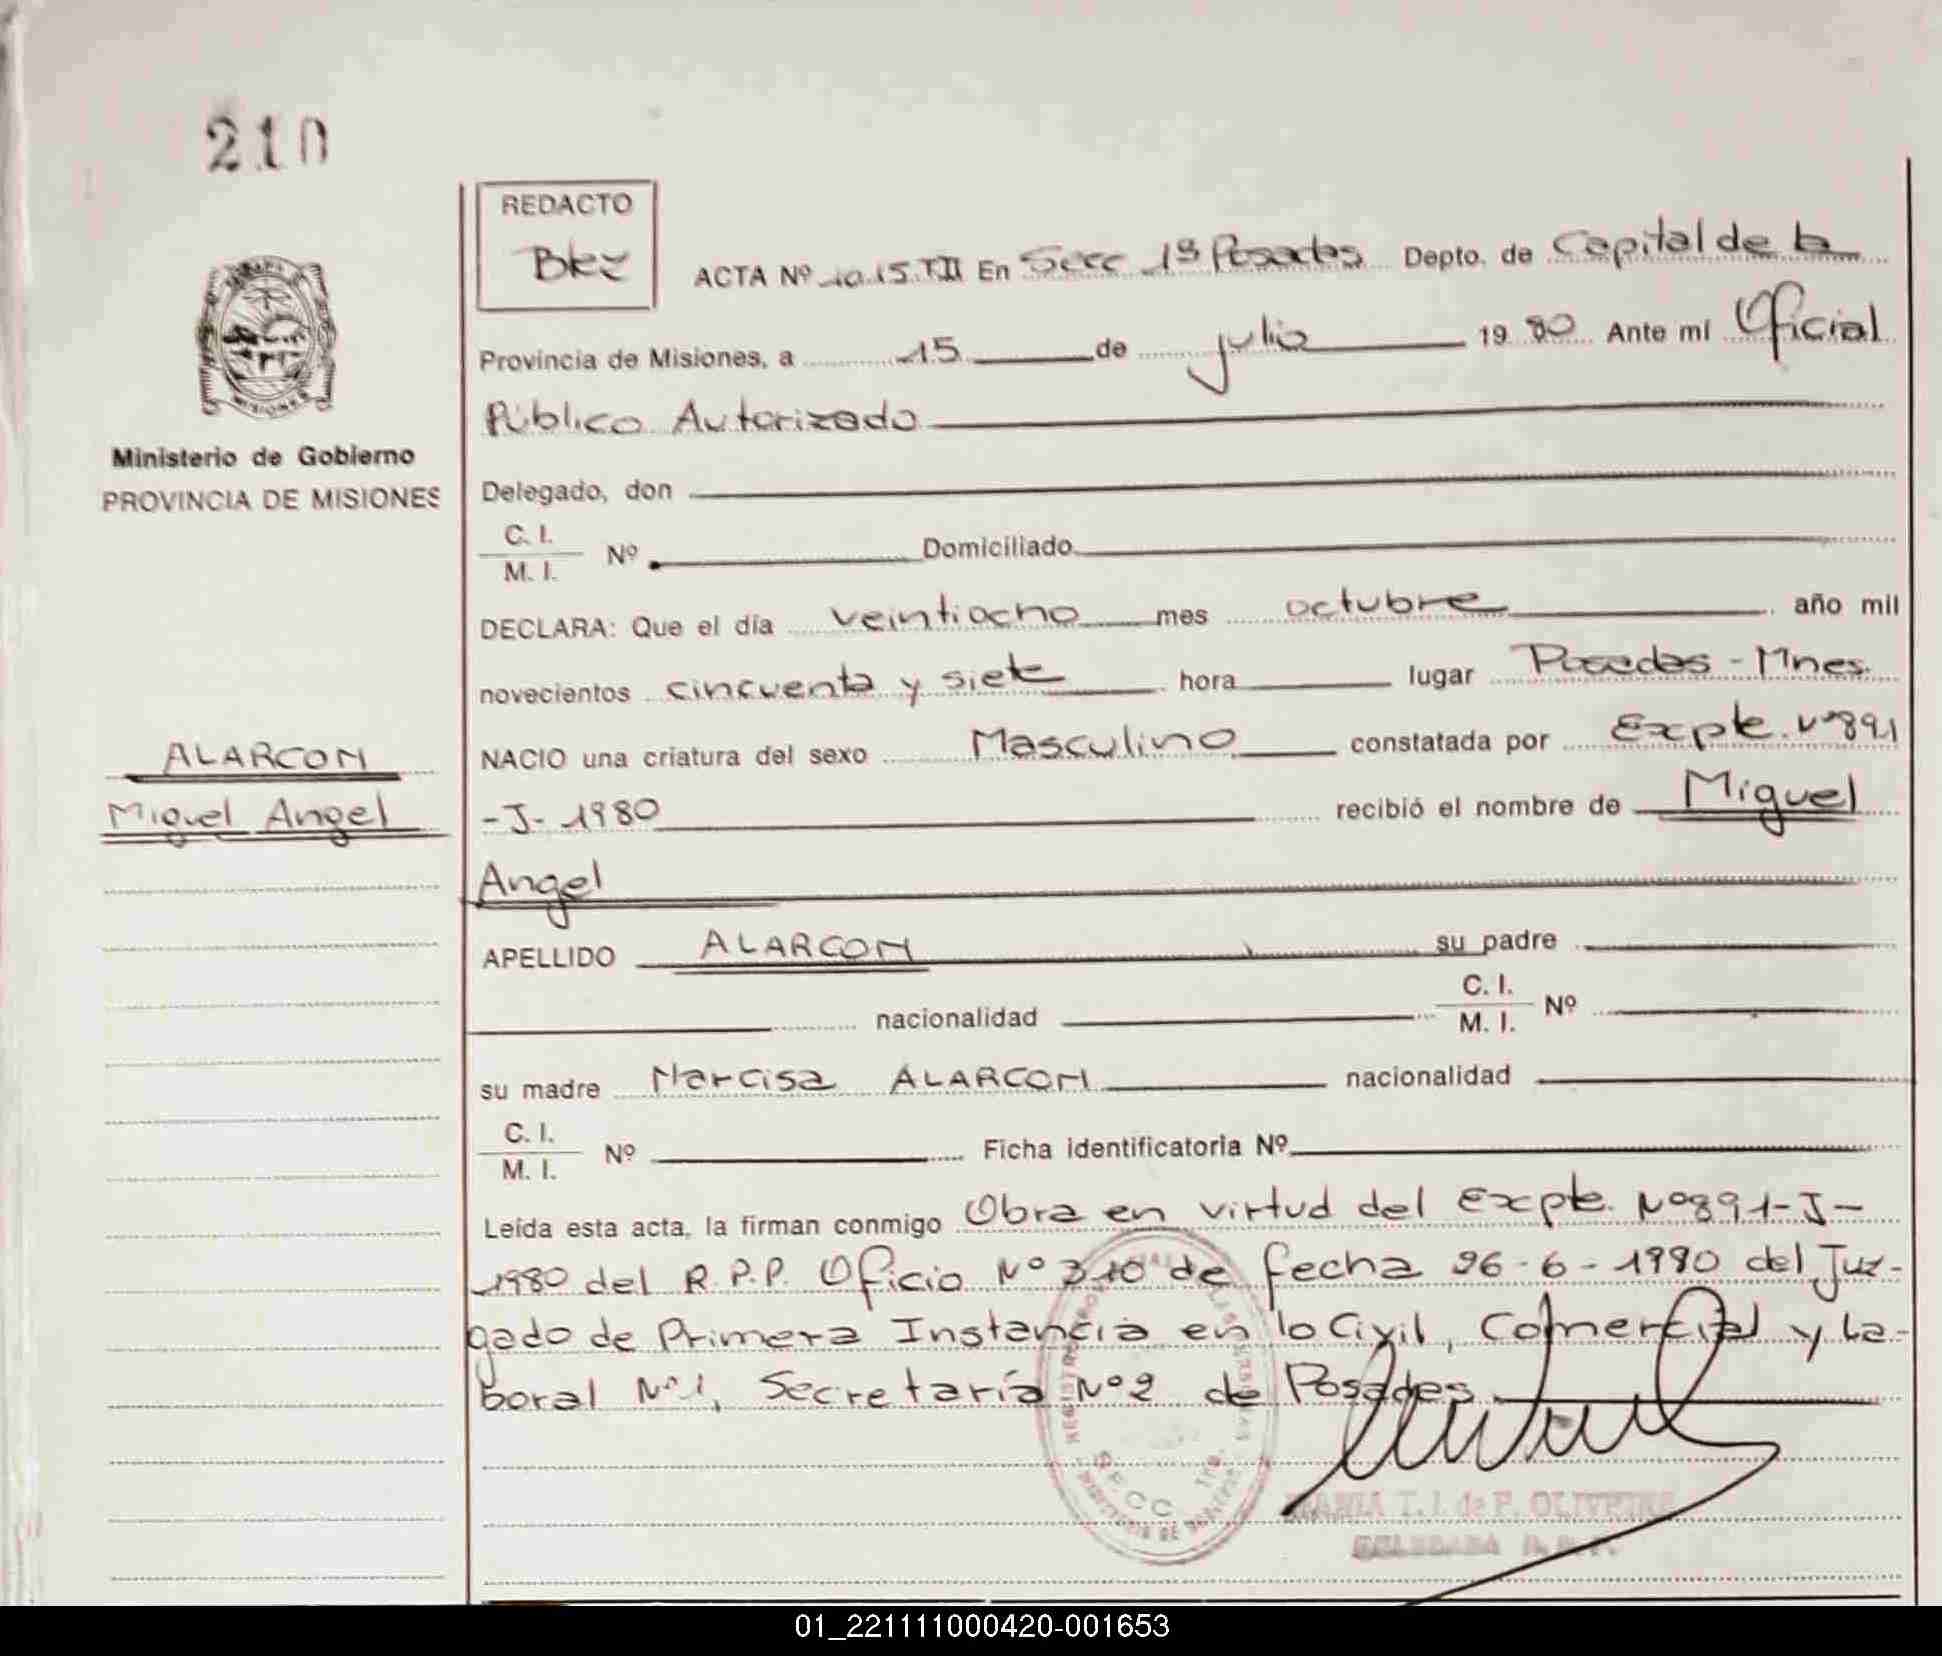 210
REDACTO
Bkz
ACTA Nº 1015.TII En Secc 1ª Posadas Depto. de Capital de la
Provincia de Misiones, a 15 de julio 1980 Ante mí Oficial
Público Autorizado
MISIONES
Ministerio de Gobierno
PROVINCIA DE MISIONES
Delegado, don
C. I.
M. I. Nº Domiciliado
DECLARA: Que el día veintiocho mes octubre año mil
novecientos cincuenta y siete hora lugar Posadas - Mnes.
NACIO una criatura del sexo Masculino constatada por Expte. Nº 891
-J- 1980 recibió el nombre de Miguel
Angel
ALARCON
Miguel Angel
APELLIDO ALARCON su padre
nacionalidad C. I.
M. I. Nº
su madre Narcisa ALARCON nacionalidad
C. I.
M. I. Nº Ficha identificatoria Nº
Leída esta acta, la firman conmigo Obra en virtud del Expte. Nº 891-J-
1980 del R.P.P. Oficio Nº 310 de fecha 26-6-1980 del Juz-
gado de Primera Instancia en lo Civil, Comercial y La-
boral Nº 1, Secretaría Nº 2 de Posadas.
SECC. 1ra.
MARIA T. I. de F. OLIVEIRA
DELEGADA
01_221111000420-001653